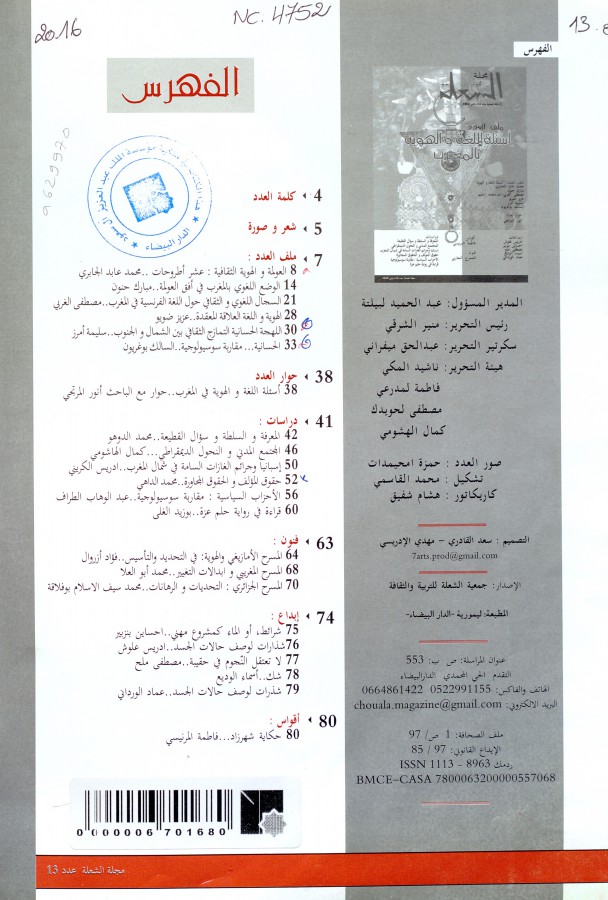 2016
NC. 4752
13
الفهرس
الفهرس
9629970
هذا الكتاب في ملكية مؤسسة الملك عبد العزيز آل سعود
★ الدار البيضاء ★
4 كلمة العدد
5 شعر و صورة
7 ملف العدد :
8 العولمة و الهوية الثقافية : عشر أطروحات ..محمد عابد الجابري
14 الوضع اللغوي بالمغرب في أفق العولمة..مبارك حنون
21 السجال اللغوي و الثقافي حول اللغة الفرنسية في المغرب..مصطفى الغربي
28 الهوية و اللغة العلاقة المعقدة..عزيز ضويو
30 اللهجة الحسانية التمازج الثقافي بين الشمال و الجنوب..سليمة أمرز
33 الحسانية... مقاربة سوسيولوجية..السالك بوغريون
38 حوار العدد
38 أسئلة اللغة و الهوية في المغرب..حوار مع الباحث أنور المرتجي
41 دراسات :
42 المعرفة و السلطة و سؤال القطيعة..محمد الدوهو
46 المجتمع المدني و التحول الديمقراطي...كمال الهاشومي
50 إسبانيا وجرائم الغازات السامة في شمال المغرب..ادريس الكريني
52 حقوق المؤلف و الحقوق المجاورة..محمد الداهي
56 الأحزاب السياسية : مقاربة سوسيولوجية..عبد الوهاب الطراف
60 قراءة في رواية حلم عزة..بوزيد الغلى
63 فنون :
64 المسرح الأمازيغي والهوية: في التحديد والتأسيس..فؤاد أزروال
68 المسرح المغربي و ابدالات التغيير..محمد أبو العلا
70 المسرح الجزائري : التحديات و الرهانات..محمد سيف الاسلام بوفلاقة
74 إبداع :
75 شرائط، أو الماء كمشروع مهني..احساين بنزبير
76 شذارات لوصف حالات الجسد..ادريس علوش
77 لا تعتقل النّجوم في حقيبة..مصطفى ملح
78 شك..أسماء الوديع
79 شذرات لوصف حالات الجسد..عماد الورداني
80 أقواس :
80 حكاية شهرزاد...فاطمة المرنيسي
0 000006 701680
مجلة
الشعلة
ملف العدد
أسئلة اللغة و الهوية
بالمغرب
المدير المسؤول: عبد الحميد لبيلتة
رئيس التحرير: منير الشرقي
سكرتير التحرير: عبدالحق ميفراني
هيئة التحرير: ناشيد المكي
فاطمة لمدرعي
مصطفى لحويدك
كمال الهشومي
صور العدد : حمزة امحيمدات
تشكيل : محمد القاسمي
كاريكاتور : هشام شفيق
التصميم : سعد القادري - مهدي الإدريسي
7arts.prod@gmail.com
الإصدار: جمعية الشعلة للتربية والثقافة
المطبعة: ليمورية -الدار البيضاء-
عنوان المراسلة: ص ب: 553
التقدم الحي المحمدي الدارالبيضاء
الهاتف والفاكس: 0522991155 0664861422
البريد الالكتروني: chouala.magazine@gmail.com
ملف الصحافة: 1 ص/ 97
الإيداع القانوني: 97 / 85
ردمك ISSN 1113 - 8963
BMCE-CASA 7800063200000557068
مجلة الشعلة عدد 13